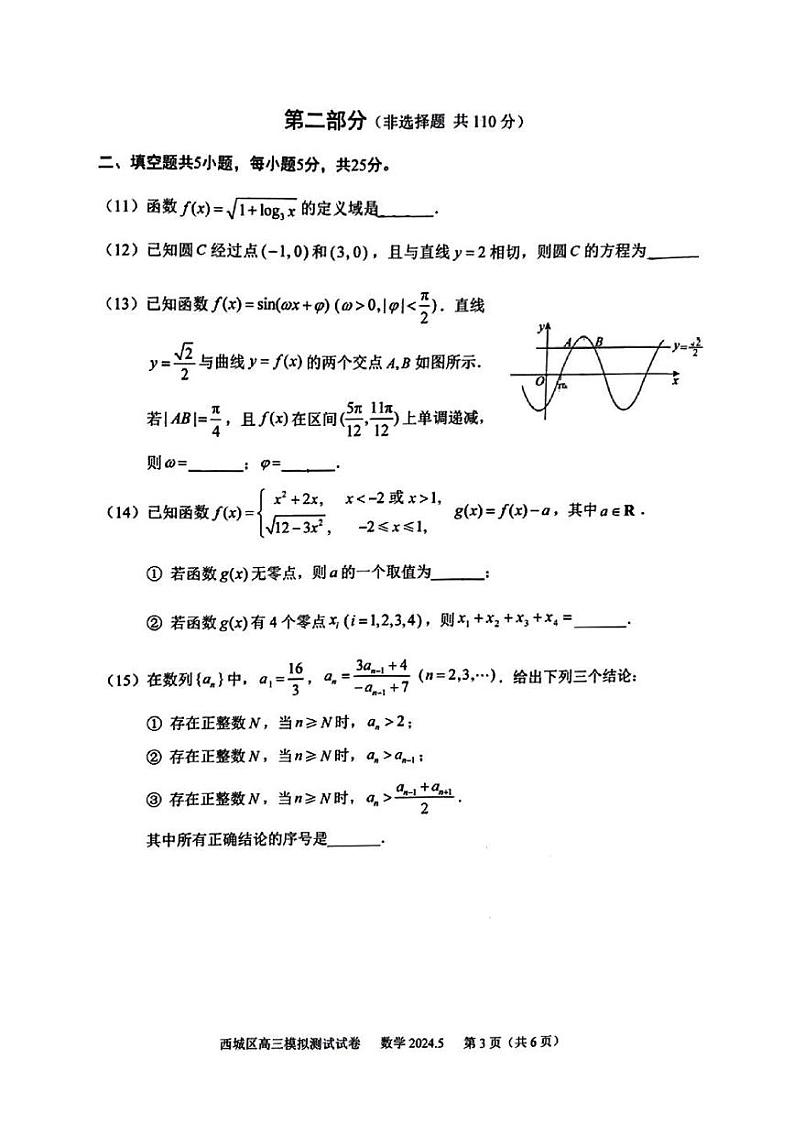 第二部分（非选择题 共110分）
二、填空题共5小题，每小题5分，共25分。
（11）函数 f(x)=√(1+log₃x) 的定义域是______．
（12）已知圆C经过点(−1,0)和(3,0)，且与直线y=2相切，则圆C的方程为______
（13）已知函数 f(x)=sin(ωx+φ) (ω>0,|φ|<π/2)．直线
y=√2/2 与曲线 y=f(x) 的两个交点 A,B 如图所示．
若|AB|=π/4，且 f(x) 在区间(5π/12,11π/12)上单调递减，
则ω=______；φ=______．
y
A
B
y=√2/2
O
x
（14）已知函数 f(x)={x²+2x, x<−2或x>1, √(12−3x²), −2≤x≤1, g(x)=f(x)−a，其中a∈R．
① 若函数g(x)无零点，则a的一个取值为______；
② 若函数g(x)有4个零点xᵢ(i=1,2,3,4)，则x₁+x₂+x₃+x₄=______．
（15）在数列{aₙ}中，a₁=16/3，aₙ=(3aₙ₋₁+4)/(−aₙ₋₁+7) (n=2,3,⋯)．给出下列三个结论：
① 存在正整数N，当n≥N时，aₙ>2；
② 存在正整数N，当n≥N时，aₙ>aₙ₋₁；
③ 存在正整数N，当n≥N时，aₙ>(aₙ₋₁+aₙ₊₁)/2．
其中所有正确结论的序号是______．
西城区高三模拟测试试卷 数学2024.5 第3页（共6页）